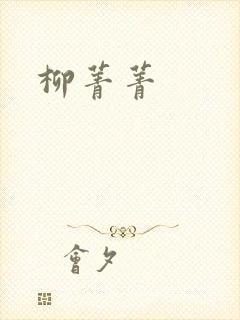 柳菁菁
會夕